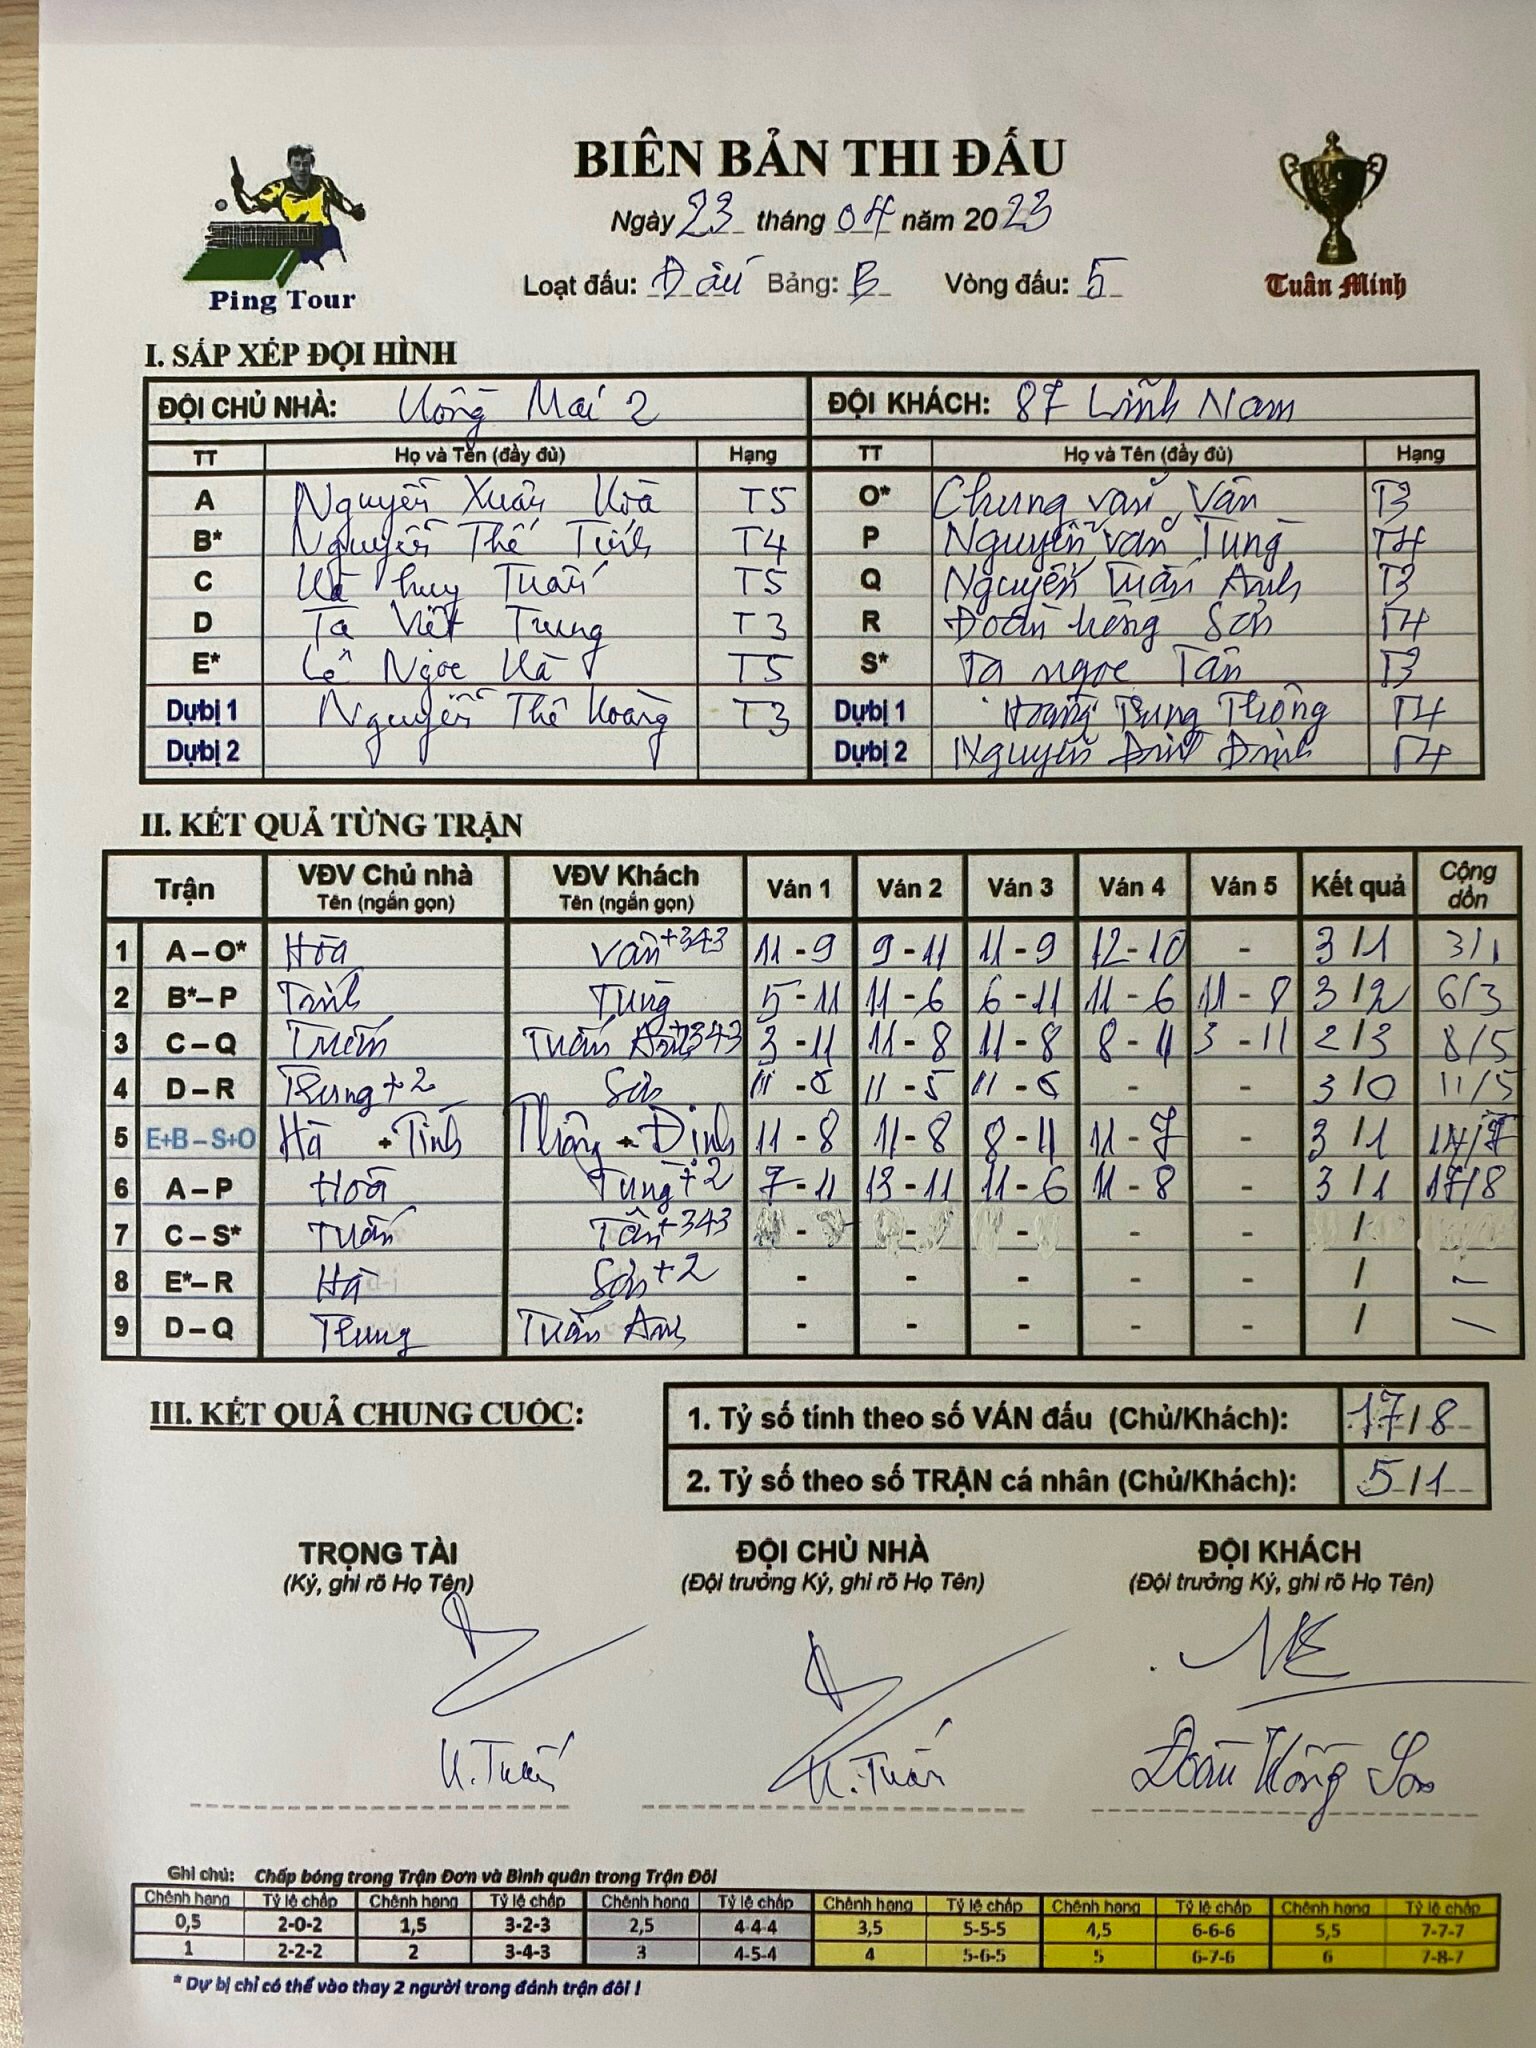 BIÊN BẢN THI ĐẤU
Ngày 23 tháng 04 năm 2023
Ping Tour
Loạt đấu: Đấu Bảng: B Vòng đấu: 5
Tuân Minh
I. SẮP XẾP ĐỘI HÌNH
ĐỘI CHỦ NHÀ: Hồng Mai 2 ĐỘI KHÁCH: 87 Lĩnh Nam
TT Họ và Tên (đầy đủ) Hạng TT Họ và Tên (đầy đủ) Hạng
A Nguyễn Xuân Hoà T5 O* Chung Văn Vân T3
B* Nguyễn Thế Tính T4 P Nguyễn Văn Tùng T4
C Hà Huy Tuấn T5 Q Nguyễn Tuấn Anh T3
D Tạ Việt Trung T3 R Đoàn Hồng Sơn T4
E* Lê Ngọc Hà T5 S* Tạ Ngọc Tân T3
Dự bị 1 Nguyễn Thế Hoàng T3 Dự bị 1 Hoàng Trung Thông T4
Dự bị 2 Dự bị 2 Nguyễn Đình Định T4
II. KẾT QUẢ TỪNG TRẬN
Trận VĐV Chủ nhà Tên (ngắn gọn) VĐV Khách Tên (ngắn gọn) Ván 1 Ván 2 Ván 3 Ván 4 Ván 5 Kết quả Cộng dồn
1 A – O* Hòa Vân +343 11 - 9 9 - 11 11 - 9 12 - 10 - 3 / 1 3/1
2 B* – P Tính Tùng 5 - 11 11 - 6 6 - 11 11 - 6 11 - 8 3 / 2 6/3
3 C – Q Tuấn Tuấn Anh +343 3 - 11 11 - 8 11 - 8 8 - 11 3 - 11 2 / 3 8/5
4 D – R Trung +2 Sơn 11 - 6 11 - 5 11 - 6 - - 3 / 0 11/5
5 E+B – S+O Hà + Tính Thông + Định 11 - 8 11 - 8 8 - 11 11 - 7 - 3 / 1 14/7
6 A – P Hoà Tùng +2 7 - 11 13 - 11 11 - 6 11 - 8 - 3 / 1 17/8
7 C – S* Tuấn Tân +343 - - - - - /
8 E* – R Hà Sơn +2 - - - - - / –
9 D – Q Trung Tuấn Anh - - - - - / –
III. KẾT QUẢ CHUNG CUỘC:
1. Tỷ số tính theo số VÁN đấu (Chủ/Khách): 17 / 8
2. Tỷ số theo số TRẬN cá nhân (Chủ/Khách): 5 / 1
TRỌNG TÀI ĐỘI CHỦ NHÀ ĐỘI KHÁCH
(Ký, ghi rõ Họ Tên) (Đội trưởng Ký, ghi rõ Họ Tên) (Đội trưởng Ký, ghi rõ Họ Tên)
H. Tuấn H. Tuấn Đoàn Hồng Sơn
Ghi chú: Chấp bóng trong Trận Đơn và Bình quân trong Trận Đôi
Chênh hạng Tỷ lệ chấp Chênh hạng Tỷ lệ chấp Chênh hạng Tỷ lệ chấp Chênh hạng Tỷ lệ chấp Chênh hạng Tỷ lệ chấp Chênh hạng Tỷ lệ chấp
0,5 2-0-2 1,5 3-2-3 2,5 4-4-4 3,5 5-5-5 4,5 6-6-6 5,5 7-7-7
1 2-2-2 2 3-4-3 3 4-5-4 4 5-6-5 5 6-7-6 6 7-8-7
* Dự bị chỉ có thể vào thay 2 người trong đánh trận đôi !